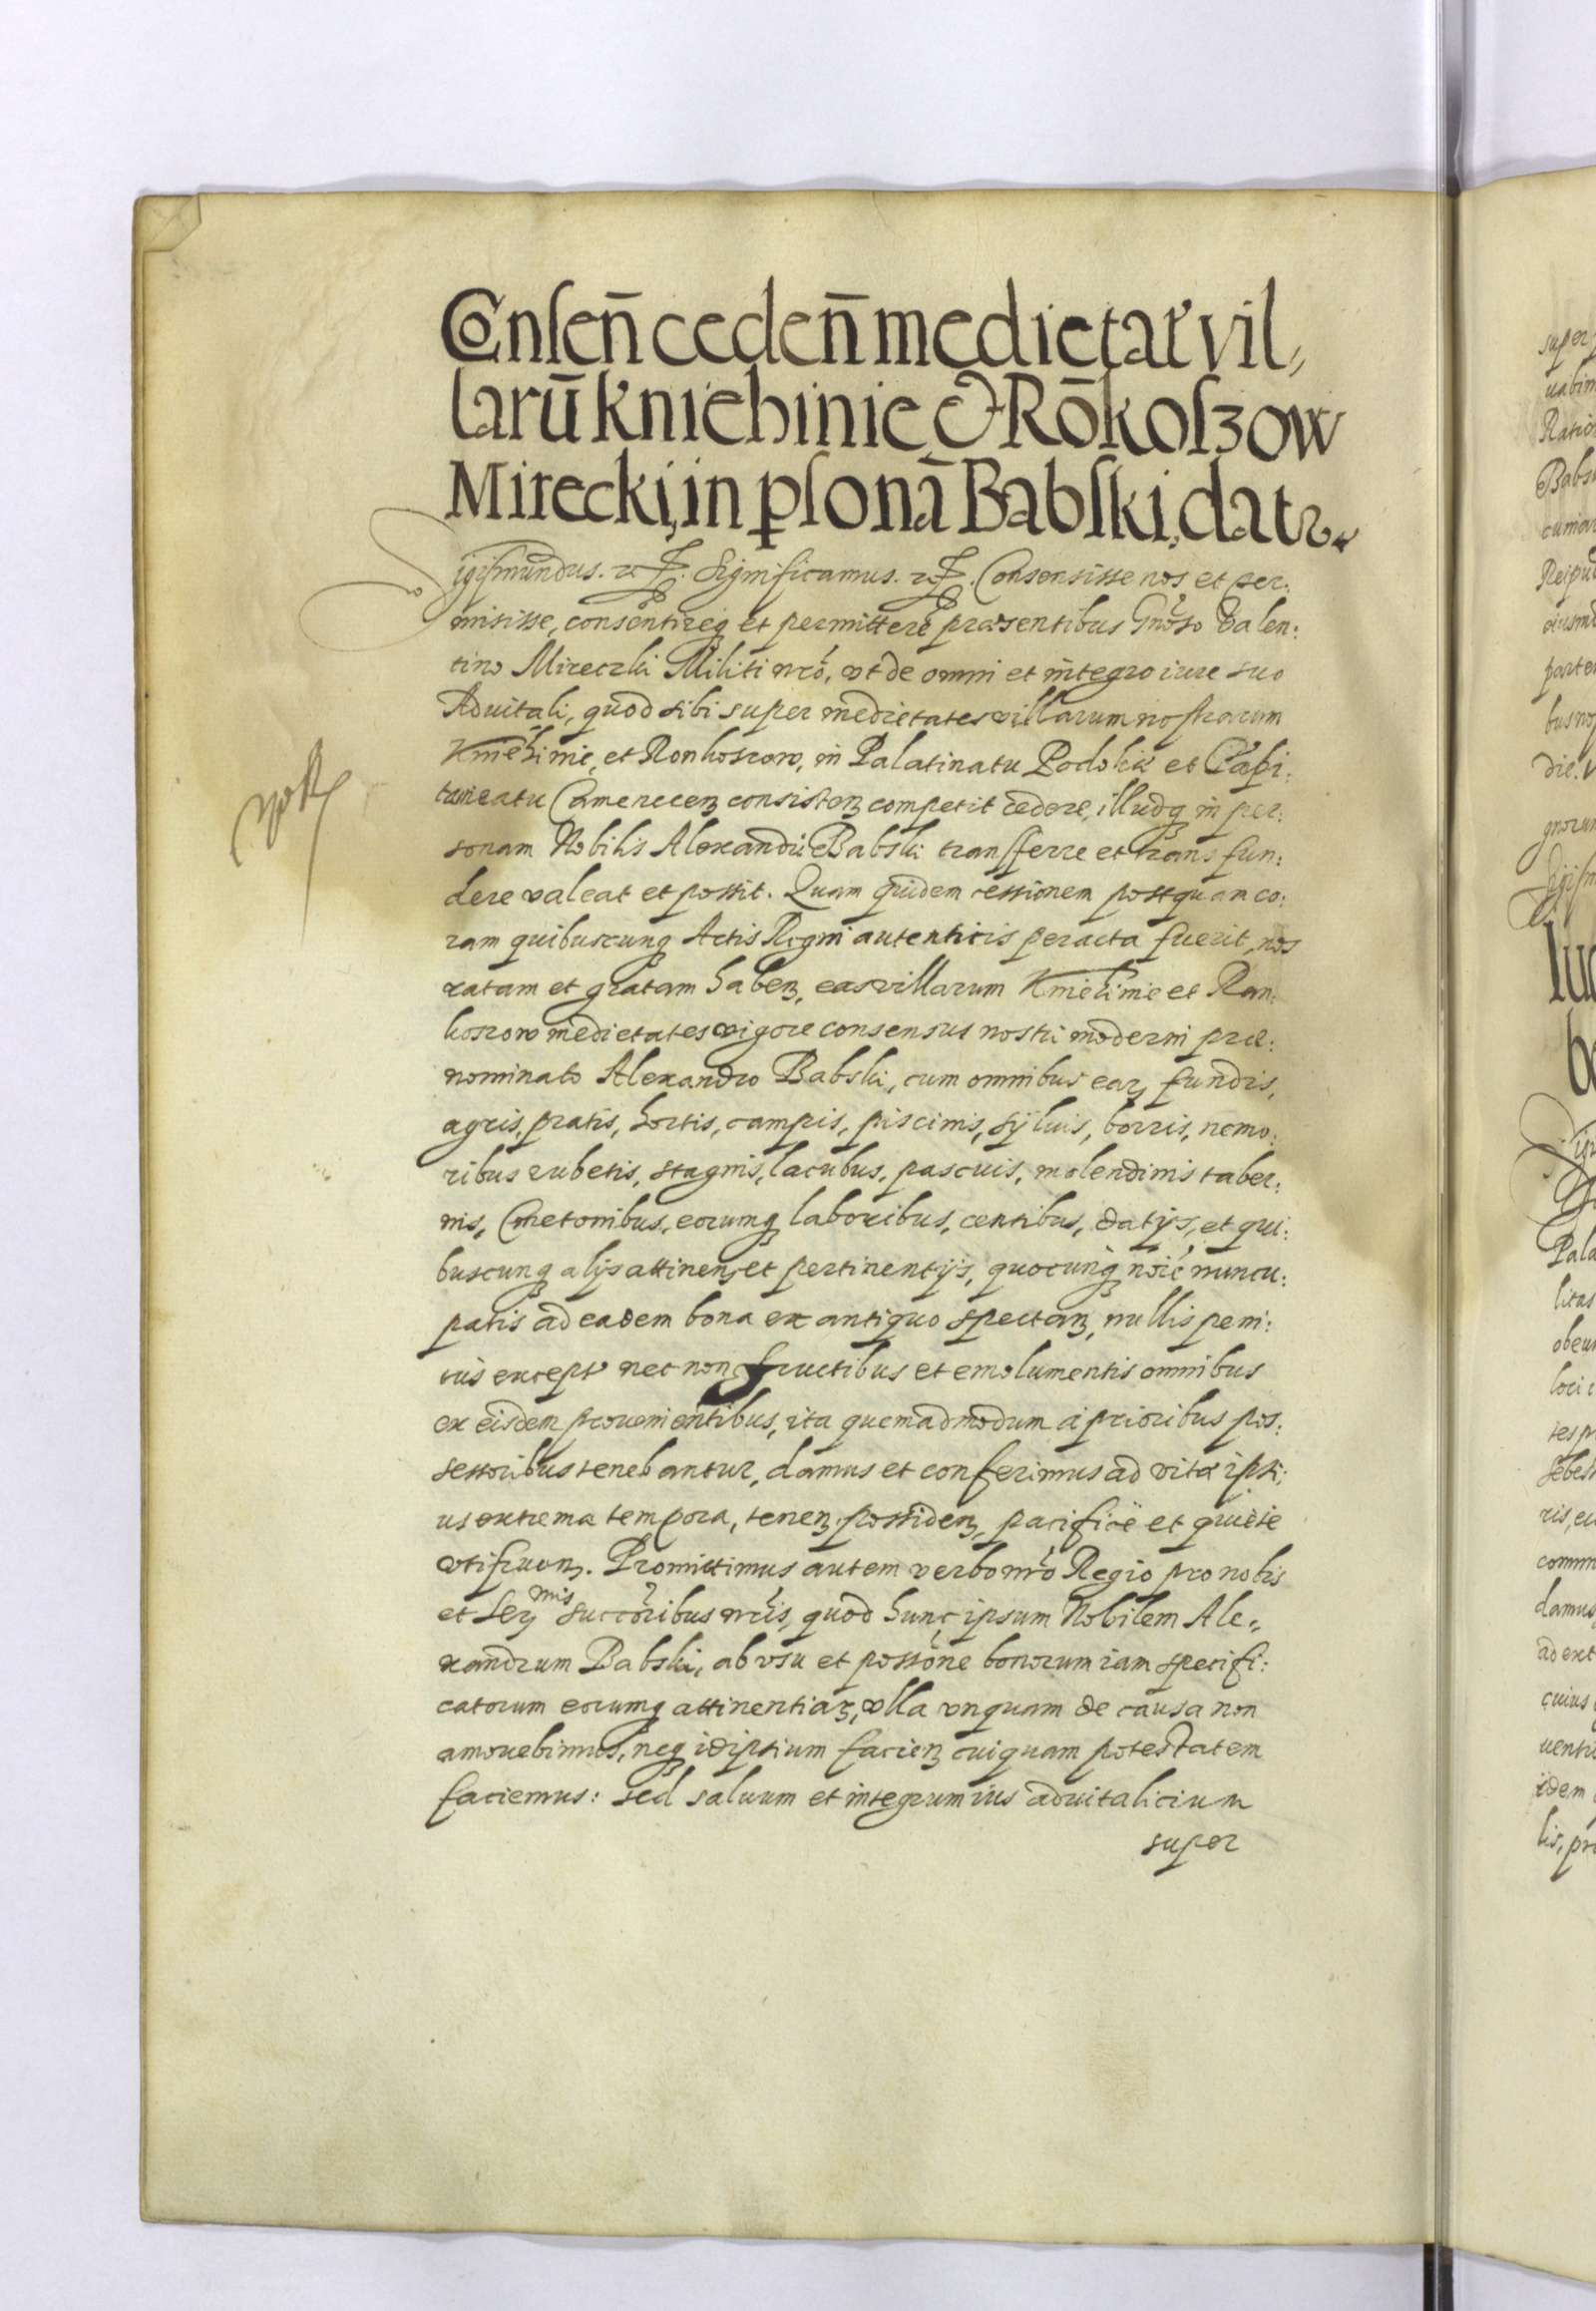 Consen̄ ceden̄ medietat' vil„
larū kniehinie & Rōkoszow
Mirecki, in psonā Babski, datr.
Sigismundus. etc. Significamus. etc. Consensisse nos et per:
misisse, consentireq et permittere præsentibus Gnoso Valen:
tino Mireczki Militi nro, vt de omni et integro iure suo
Aduitali, quod sibi super medietates villarum nostrarum
Kniehinie, et Ronkoszow, in Palatinatu Podoliæ et Capi:
taneatu Camenecen consisten competit cedere, illudq in per:
sonam Nobilis Alexandri Babski transferre et transfun:
dere valeat et possit. Quam quidem cessionem postquam co:
ram quibuscunq Actis Regni autenticis peracta fuerit, nos
ratam et gratam haben, eas villarum Kniehinie et Ron:
koszow medietates vigore consensus nostri moderni præ:
nominato Alexandro Babski, cum omnibus ear, fundis,
agris, pratis, hortis, campis, piscinis, syluis, borris, nemo:
ribus rubetis, stagnis, lacubus, pascuis, molendinis taber:
nis, Cmetonibus, eorumq laboribus, censibus, datijs, et qui:
buscunq alijs attinen, et pertinentijs, quocunq noie nuncu:
patis ad eadem bona ex antiquo spectan, nullis peni:
tus except' nec non fructibus et emolumentis omnibus
ex eisdem prouenientibus, ita quemadmodum à prioribus pos:
sessoribus tenebantur, damus et conferimus ad vitæ ipsi:
us extrema tempora, tenen, possiden, pacificè et quietè
vtifruen. Promittimus autem verbo nro Regio pro nobis
et Ser mis succoribus nris, quod hunc ipsum Nobilem Ale„
xandrum Babski, ab vsu et possone bonorum iam specifi:
catorum eorumq attinentiar, vlla vnquam de causa non
amouebimus, neq id ipsum facien cuiquam potestatem
faciemus: sed saluum et integrum ius aduitalicium
super